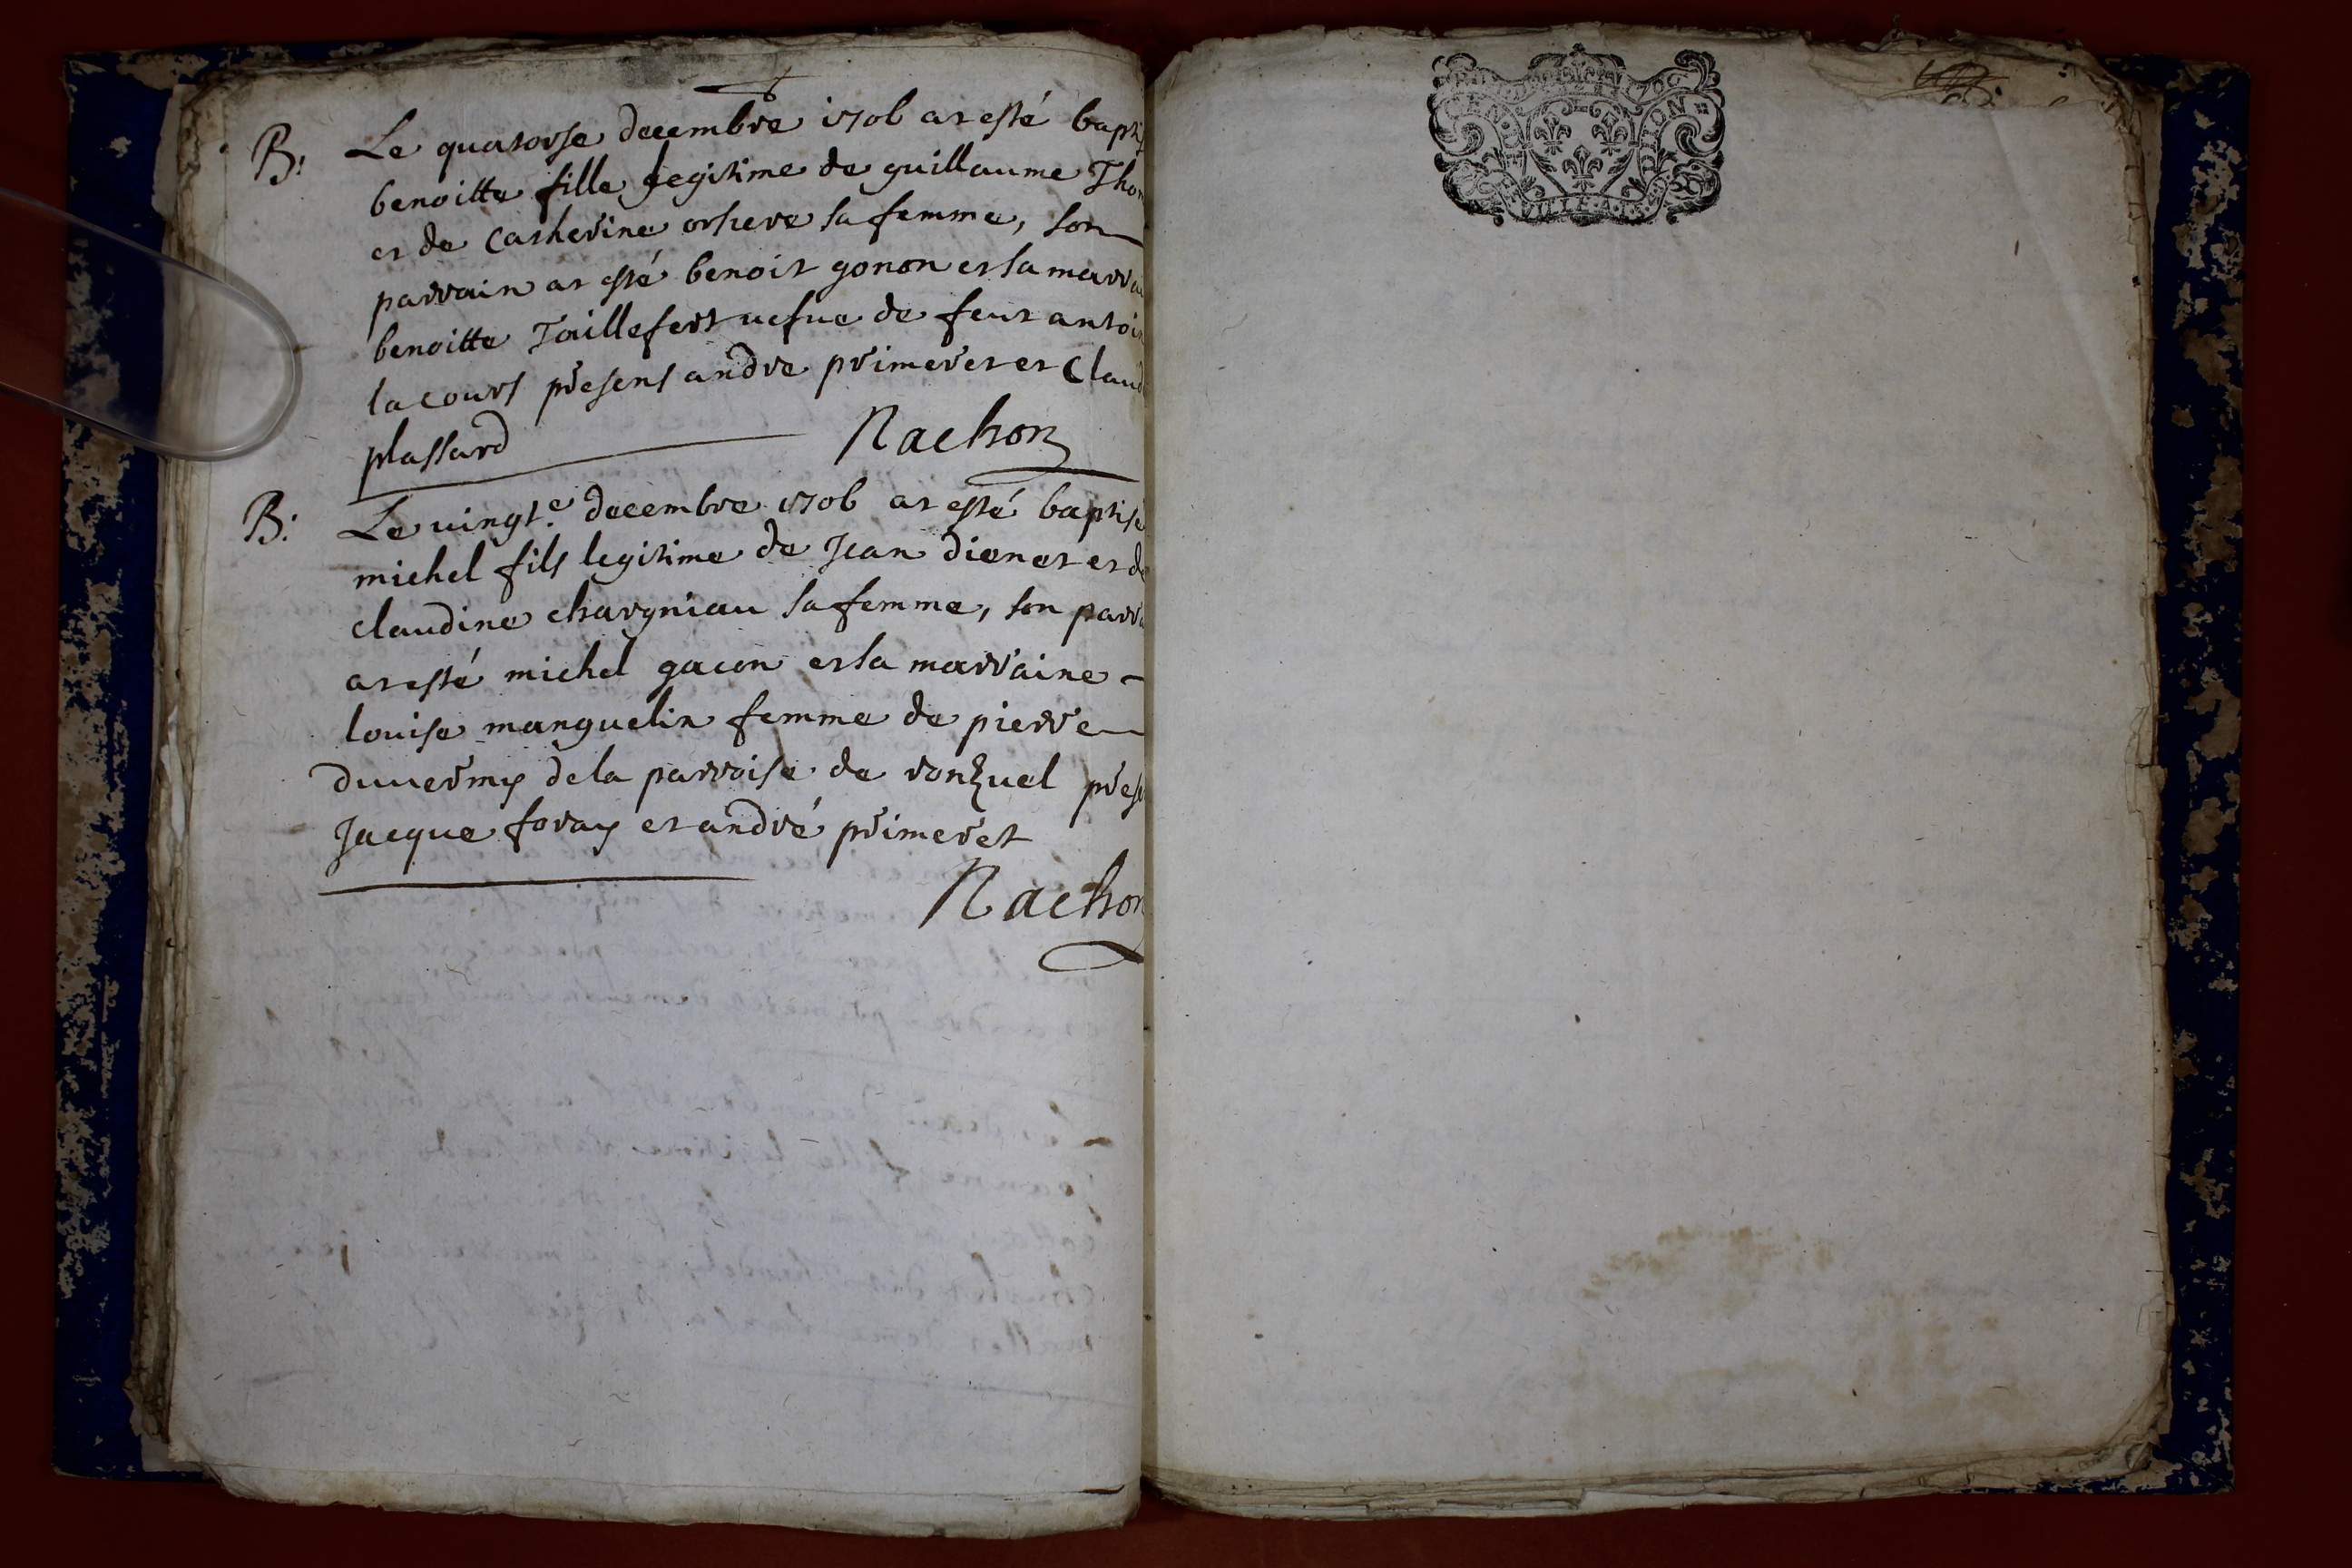 B. Le quatorse decembre 1706 at esté bapti
benoitte fille legitime de guillaume Thom
et de catherine orsiere sa femme, son
parrain at esté benoit gonon et sa marrai
benoitte Taillefert uefue de feut antoin
lacours presens andre primeret et Claud
plassard Nachon
B. Le uingt.e decembre 1706 at esté baptisé
michel fils legitime de Jean dienet et de
claudine chargniau sa femme, son parra
at esté michel gacon et sa marraine
louise manguelin femme de pierre
duuerny de la parroise de ronzuel prese
Jacque foray et andré primeret
Nachon
GEN DE
DITION